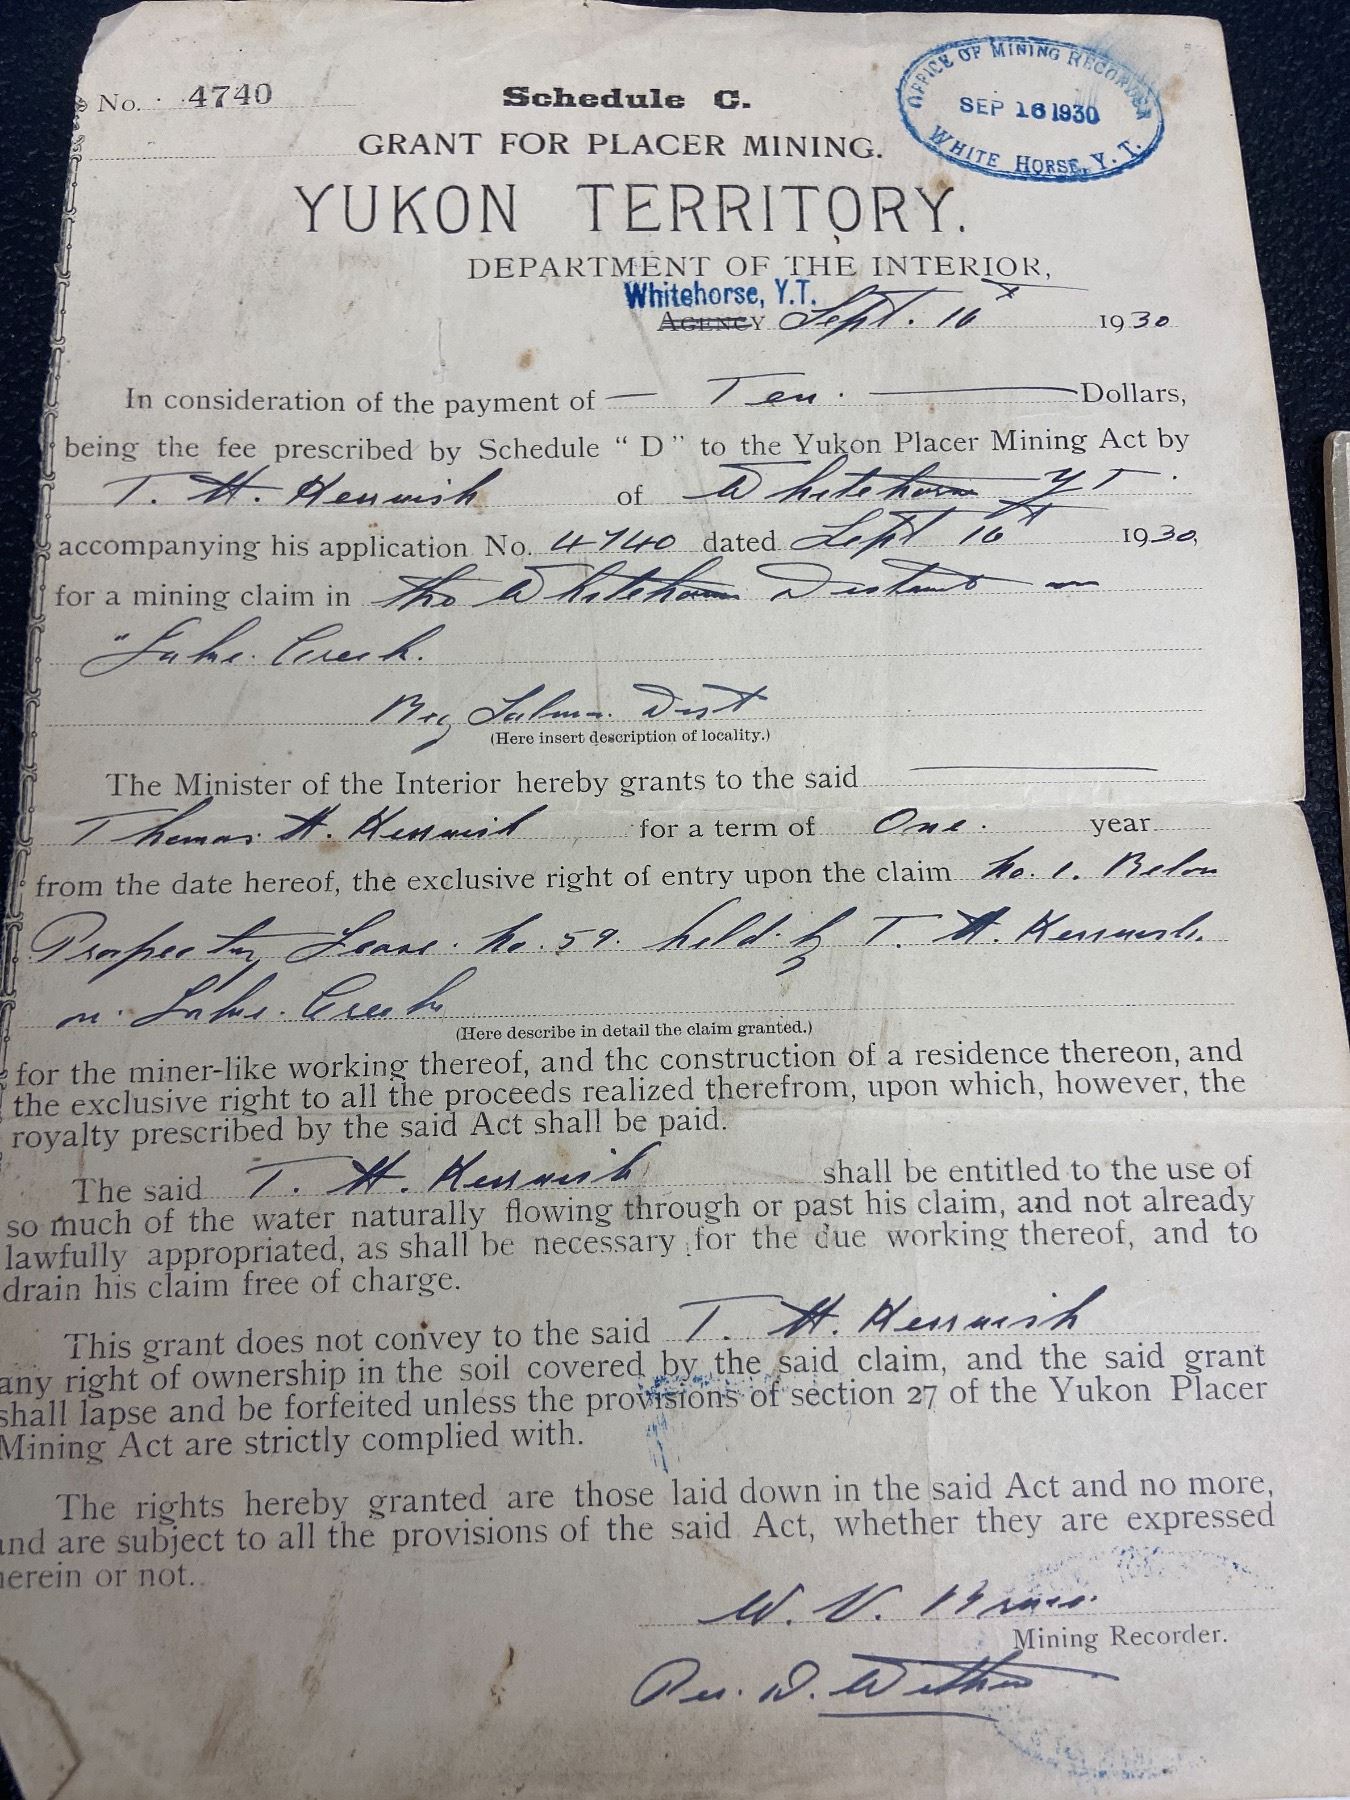 No. 4740
Schedule C.
OFFICE OF MINING RECORDER
SEP 16 1930
WHITE HORSE, Y. T.
GRANT FOR PLACER MINING.
YUKON TERRITORY.
DEPARTMENT OF THE INTERIOR,
Whitehorse, Y.T.
AGENCY Sept. 16th 1930
In consideration of the payment of — Ten. — Dollars,
being the fee prescribed by Schedule “ D ” to the Yukon Placer Mining Act by
T. H. Kerruish of Whitehorse Y T.
accompanying his application No. 4740 dated Sept 16th 1930,
for a mining claim in the Whitehorse District on
"Lake Creek.
Big Salmon Dist
(Here insert description of locality.)
The Minister of the Interior hereby grants to the said
Thomas H. Kerruish for a term of One. year
from the date hereof, the exclusive right of entry upon the claim No. 1. Below
Prospecting Lease No. 59. held by T. H. Kerruish.
on Lake Creek
(Here describe in detail the claim granted.)
for the miner-like working thereof, and the construction of a residence thereon, and
the exclusive right to all the proceeds realized therefrom, upon which, however, the
royalty prescribed by the said Act shall be paid.
The said T. H. Kerruish shall be entitled to the use of
so much of the water naturally flowing through or past his claim, and not already
lawfully appropriated, as shall be necessary for the due working thereof, and to
drain his claim free of charge.
This grant does not convey to the said T. H. Kerruish
any right of ownership in the soil covered by the said claim, and the said grant
shall lapse and be forfeited unless the provisions of section 27 of the Yukon Placer
Mining Act are strictly complied with.
The rights hereby granted are those laid down in the said Act and no more,
and are subject to all the provisions of the said Act, whether they are expressed
herein or not.
W. V.
Mining Recorder.
Per. D.